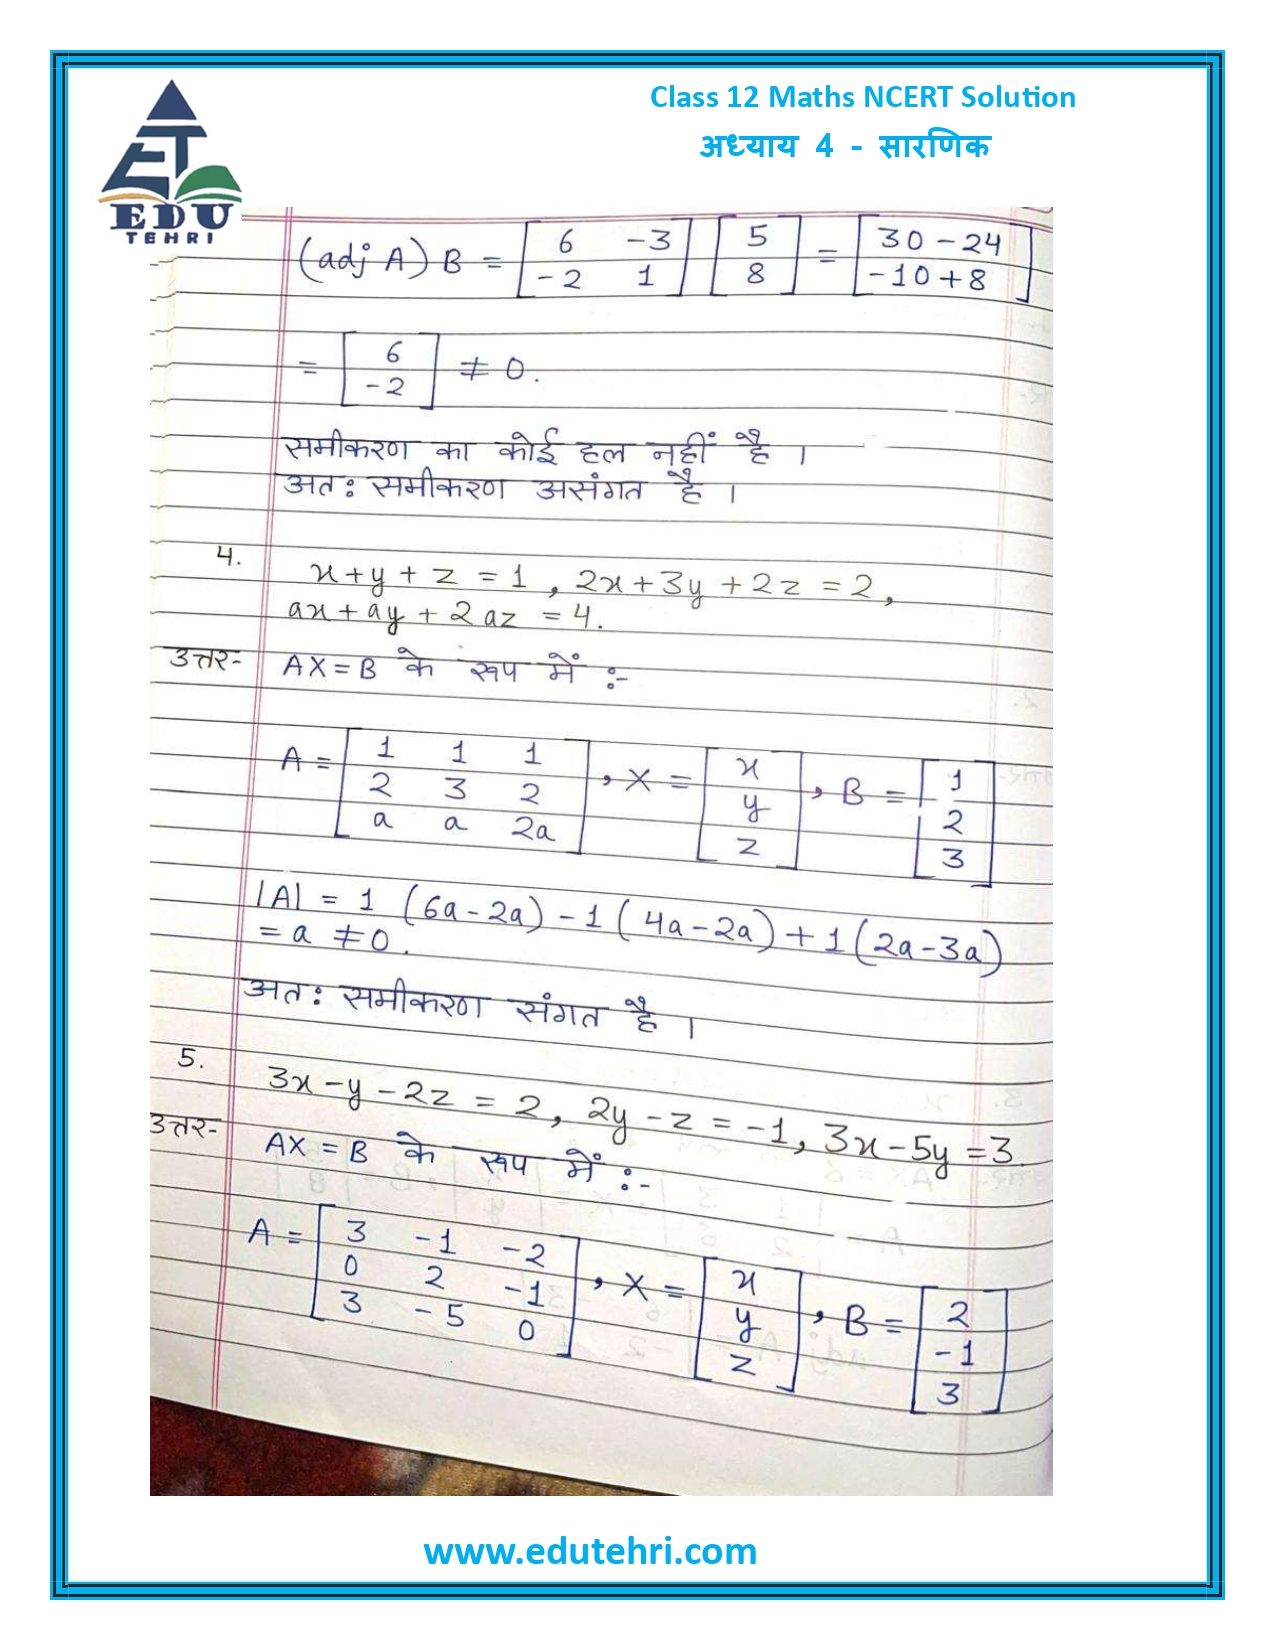 Class 12 Maths NCERT Solution
अध्याय 4 - सारणिक
EDU
TEHRI
(adj A) B = [6 -3; -2 1] [5; 8] = [30 - 24; -10 + 8]
= [6; -2] ≠ 0.
समीकरण का कोई हल नहीं है ।
अतः समीकरण असंगत है ।
4.
x + y + z = 1, 2x + 3y + 2z = 2,
ax + ay + 2az = 4.
उत्तर- AX = B के रूप में :-
A = [1 1 1; 2 3 2; a a 2a], X = [x; y; z], B = [1; 2; 3]
|A| = 1 (6a - 2a) - 1 (4a - 2a) + 1 (2a - 3a)
= a ≠ 0.
अतः समीकरण संगत है ।
5.
3x - y - 2z = 2, 2y - z = -1, 3x - 5y = 3.
उत्तर- AX = B के रूप में :-
A = [3 -1 -2; 0 2 -1; 3 -5 0], X = [x; y; z], B = [2; -1; 3]
www.edutehri.com